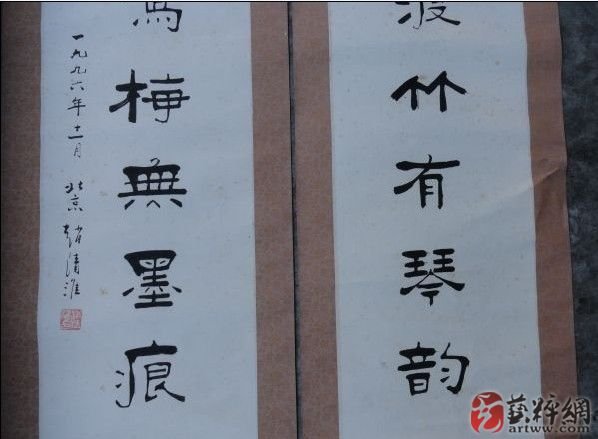 竹有琴韵
梅無墨痕
一九九六年十一月 北京 趙清淮
藝粹網
artww.com